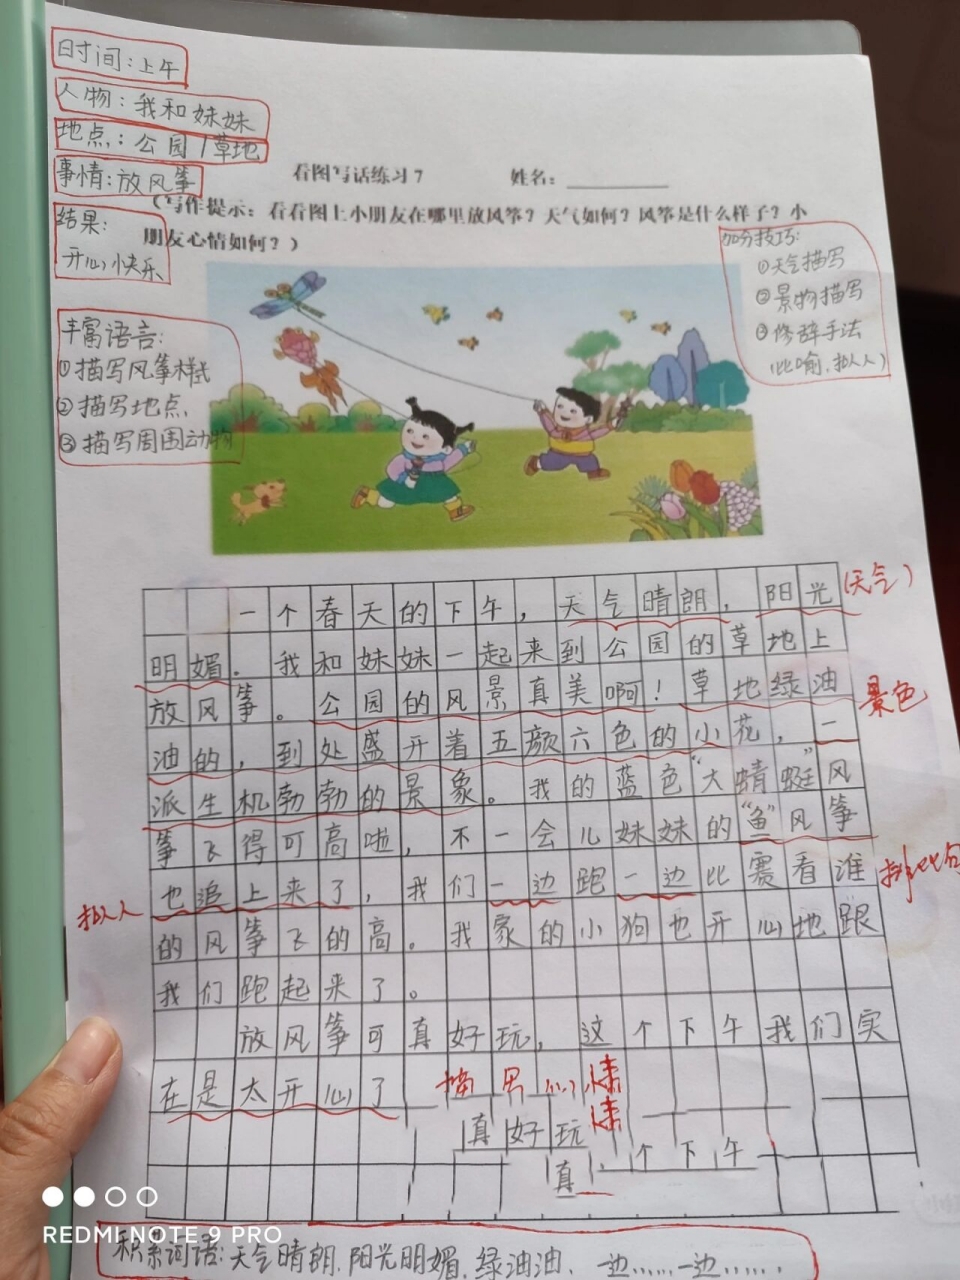 时间：上午
人物：我和妹妹
地点：公园/草地
事情：放风筝
看图写话练习7 姓名：
（写作提示：看看图上小朋友在哪里放风筝？天气如何？风筝是什么样子？小
朋友心情如何？）
结果：
开心快乐
加分技巧：
①天气描写
②景物描写
③修辞手法
（比喻，拟人）
丰富语言：
①描写风筝样式
②描写地点
③描写周围动物
一个春天的下午，天气晴朗，阳光
（天气）
明媚。我和妹妹一起来到公园的草地上
放风筝。公园的风景真美啊！草地绿油
景色
油的，到处盛开着五颜六色的小花，一
派生机勃勃的景象。我的蓝色“大蜻蜓”风
筝飞得可高啦，不一会儿妹妹的“鱼”风筝
也追上来了，我们一边跑一边比赛看谁
拟人
的风筝飞的高。我家的小狗也开心地跟
我们跑起来了。
放风筝可真好玩，这个下午我们实
在是太开心了
真好玩
个下午
真
REDMI NOTE 9 PRO
积累词语：天气晴朗，阳光明媚，绿油油、一边……一边……